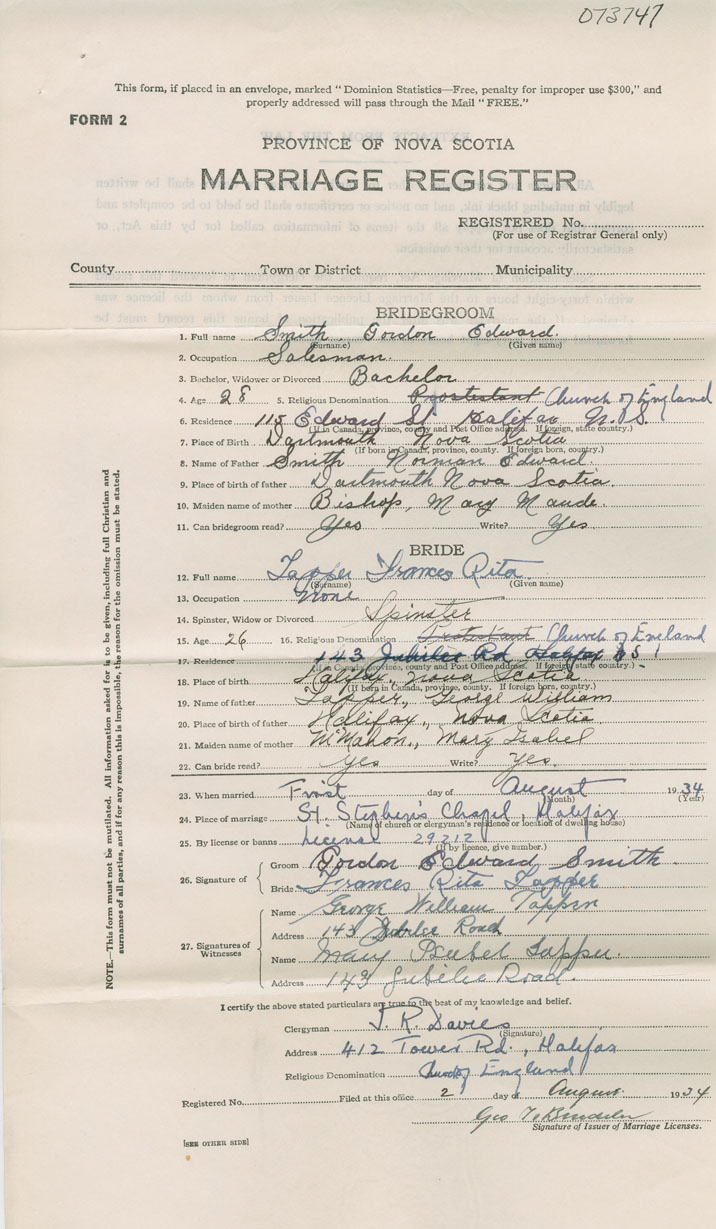 073747
This form, if placed in an envelope, marked "Dominion Statistics—Free, penalty for improper use $300," and
properly addressed will pass through the Mail "FREE."
FORM 2
PROVINCE OF NOVA SCOTIA
MARRIAGE REGISTER
REGISTERED No.
(For use of Registrar General only)
County Town or District Municipality
BRIDEGROOM
1. Full name Smith, Gordon Edward.
(Surname) (Given name)
2. Occupation Salesman.
3. Bachelor, Widower or Divorced Bachelor
4. Age 28 5. Religious Denomination Protestant Church of England
6. Residence 115 Edward St Halifax N.S.
(If in Canada, province, county and Post Office address. If foreign, state country.)
7. Place of Birth Dartmouth Nova Scotia
(If born in Canada, province, county. If foreign born, country.)
8. Name of Father Smith Norman Edward.
9. Place of birth of father Dartmouth Nova Scotia.
10. Maiden name of mother Bishop, Mary Maude.
11. Can bridegroom read? Yes Write? Yes
BRIDE
12. Full name Tapper Frances Rita
(Surname) (Given name)
13. Occupation None
14. Spinster, Widow or Divorced Spinster
15. Age 26 16. Religious Denomination Protestant Church of England
17. Residence 143 Jubilee Rd Halifax N S
(If in Canada, province, county and Post Office address. If foreign, state country.)
18. Place of birth Halifax, Nova Scotia
(If born in Canada, province, county. If foreign born, country.)
19. Name of father Tapper, George William
20. Place of birth of father Halifax, Nova Scotia
21. Maiden name of mother McMahon, Mary Isabel
22. Can bride read? Yes Write? Yes.
23. When married First day of August 1934
(Month) (Year)
24. Place of marriage St. Stephen's Chapel, Halifax
(Name of church or clergyman's residence or location of dwelling house)
25. By license or banns License 29212
(If by licence, give number.)
26. Signature of
Groom Gordon Edward Smith.
Bride Frances Rita Tapper
27. Signatures of Witnesses
Name George William Tapper
Address 143 Jubilee Road
Name Mary Isabel Tapper.
Address 143 Jubilee Road.
I certify the above stated particulars are true to the best of my knowledge and belief.
Clergyman T. R. Davies
(Signature)
Address 412 Tower Rd., Halifax
Religious Denomination Church of England
Registered No. Filed at this office 2 day of August 1934
Geo
Signature of Issuer of Marriage Licenses.
[SEE OTHER SIDE]
NOTE.—This form must not be mutilated. All information asked for is to be given, including full Christian and
surnames of all parties, and if for any reason this is impossible, the reason for the omission must be stated.